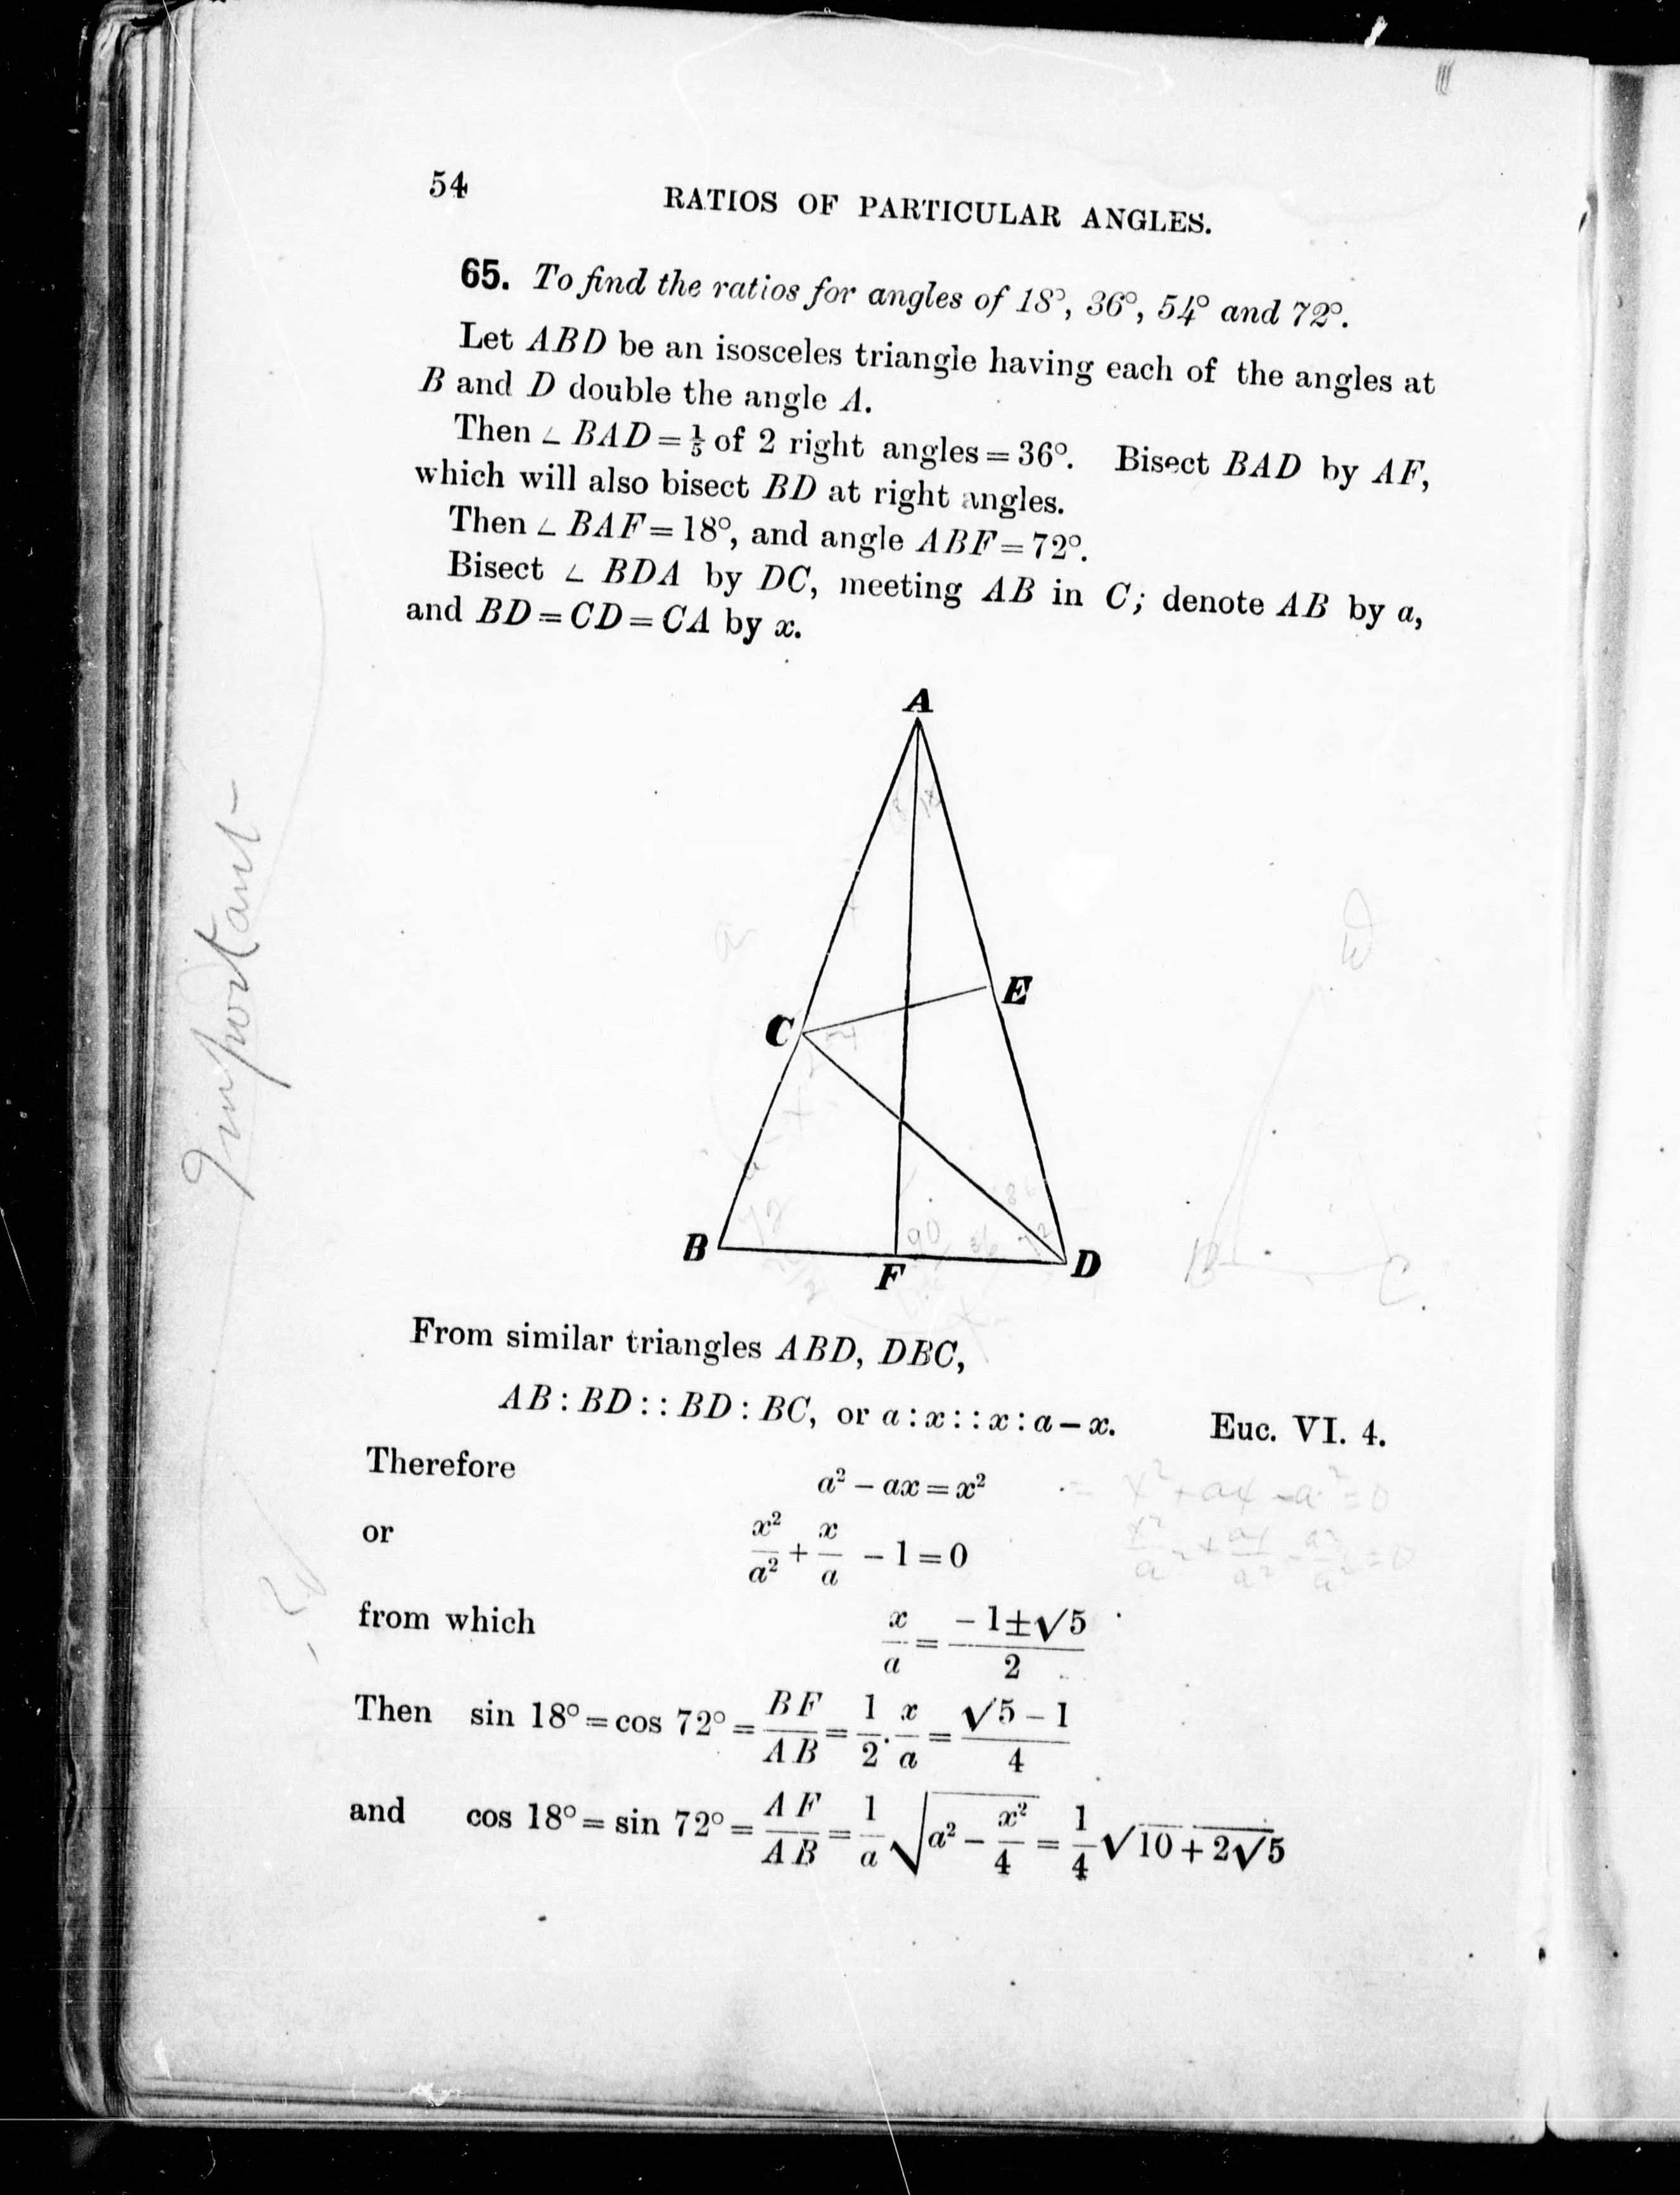 54
RATIOS OF PARTICULAR ANGLES.
65. To find the ratios for angles of 18°, 36°, 54° and 72°.
Let ABD be an isosceles triangle having each of the angles at
B and D double the angle A.
Then ∠ BAD = 1/5 of 2 right angles = 36°. Bisect BAD by AF,
which will also bisect BD at right angles.
Then ∠ BAF = 18°, and angle ABF = 72°.
Bisect ∠ BDA by DC, meeting AB in C; denote AB by a,
and BD = CD = CA by x.
A
Important
E
C
72
90
36
72
B
F
D
B
C
From similar triangles ABD, DBC,
AB : BD : : BD : BC, or a : x : : x : a − x. Euc. VI. 4.
Therefore a² − ax = x² = x² + ax − a² = 0
or x²/a² + x/a − 1 = 0 x²/a² + ax/a² − a²/a² = 0
from which x/a = (−1 ± √5)/2
Then sin 18° = cos 72° = BF/AB = 1/2 . x/a = (√5 − 1)/4
and cos 18° = sin 72° = AF/AB = 1/a √(a² − x²/4) = 1/4 √(10 + 2√5)